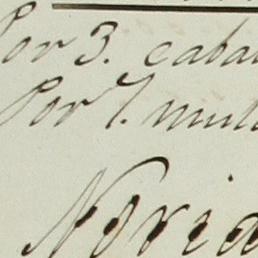 Por 3. caba
Por 7. mul
Noria